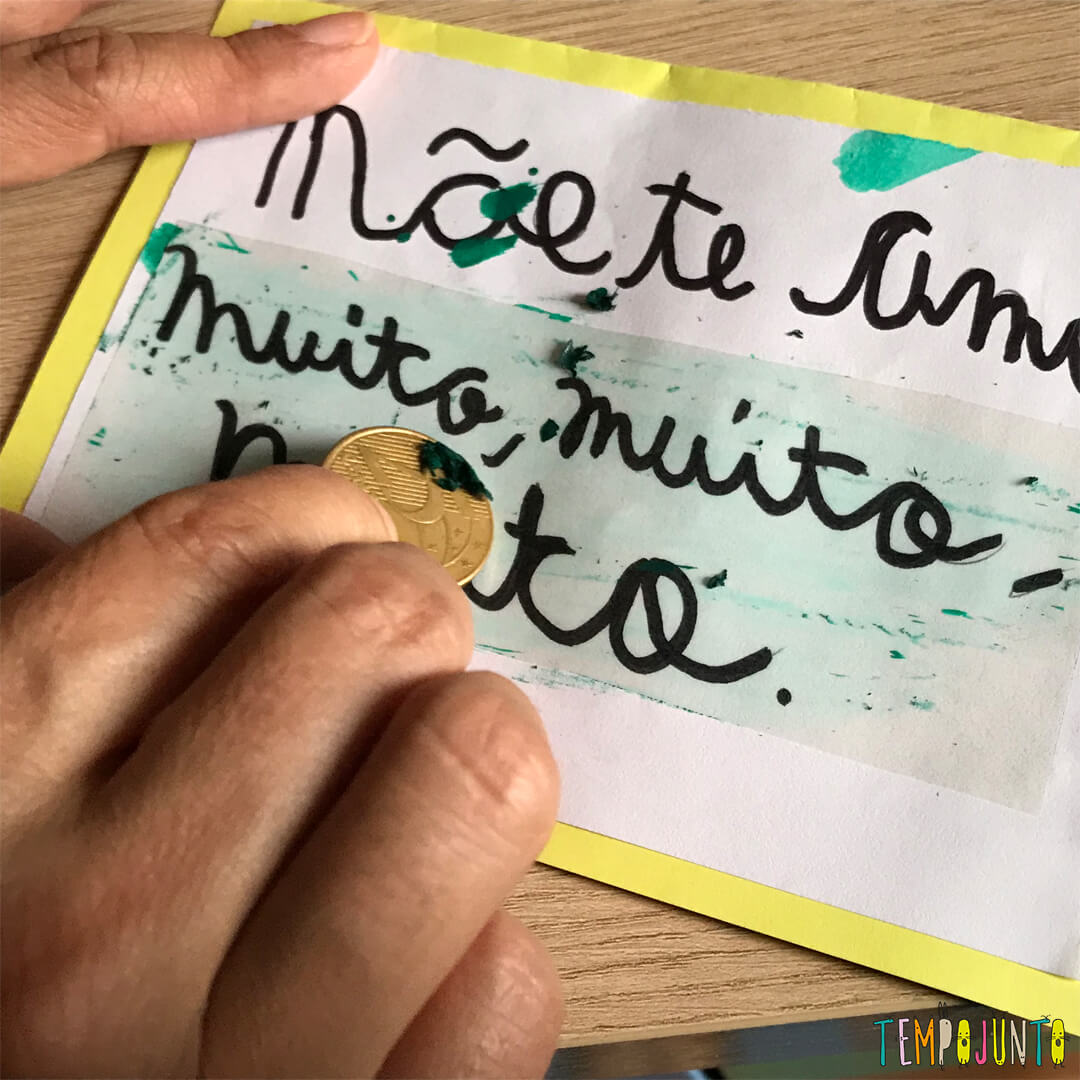 Mãe te amo
muito, muito,
muito.
TEMPOJUNTO